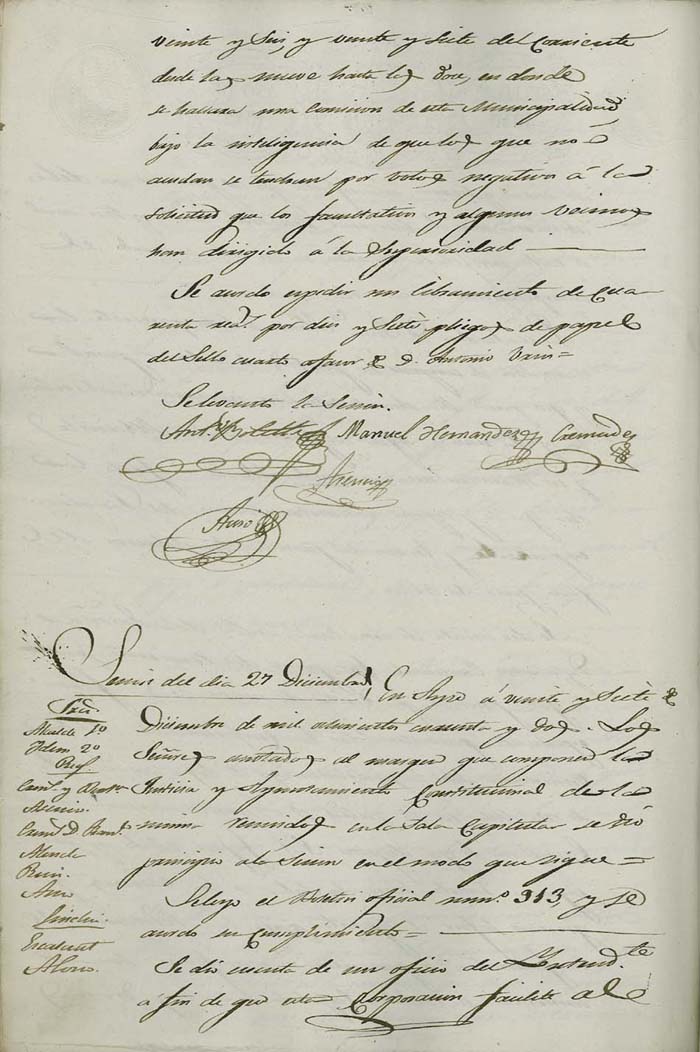 veinte y seis, y veinte y siete del Corriente
desde las nueve hasta las doce, en donde
se hallara una Comision de esta Municipalidad,
bajo la inteligencia de que los que no
acudan se tendran por votos negativos á la
solicitud que los facultativos y algunos vecinos
han dirigido á la Superioridad
Se acordo expedir un libramiento de cua
renta rea.s por diez y siete pliegos de papel
del Sello cuarto a favor de D. Antonio
Se levanto la Sesion.
Ant.o Manuel Hernandez Cremades
Asencio
Sesion del dia 27 Diciembre
En Aspe á veinte y Siete de
Diciembre de mil ochocientos cuarenta y dos. Los
Señores anotados al margen que componen la
Justicia y Ayuntamiento Constitucional de la
misma reunidos en la Sala Capitular se dió
principio a la Sesion en el modo que sigue =
Se leyo el Boletin oficial num.o 313, y se
acordo su cumplimiento =
Se dio cuenta de un oficio del Intend.te
a fin de que esta Corporacion facilite al
Alcalde 1º
Idem 2º
Reg.s
Asencio
Cam.s
Sindic.
Escalant
Alonso.